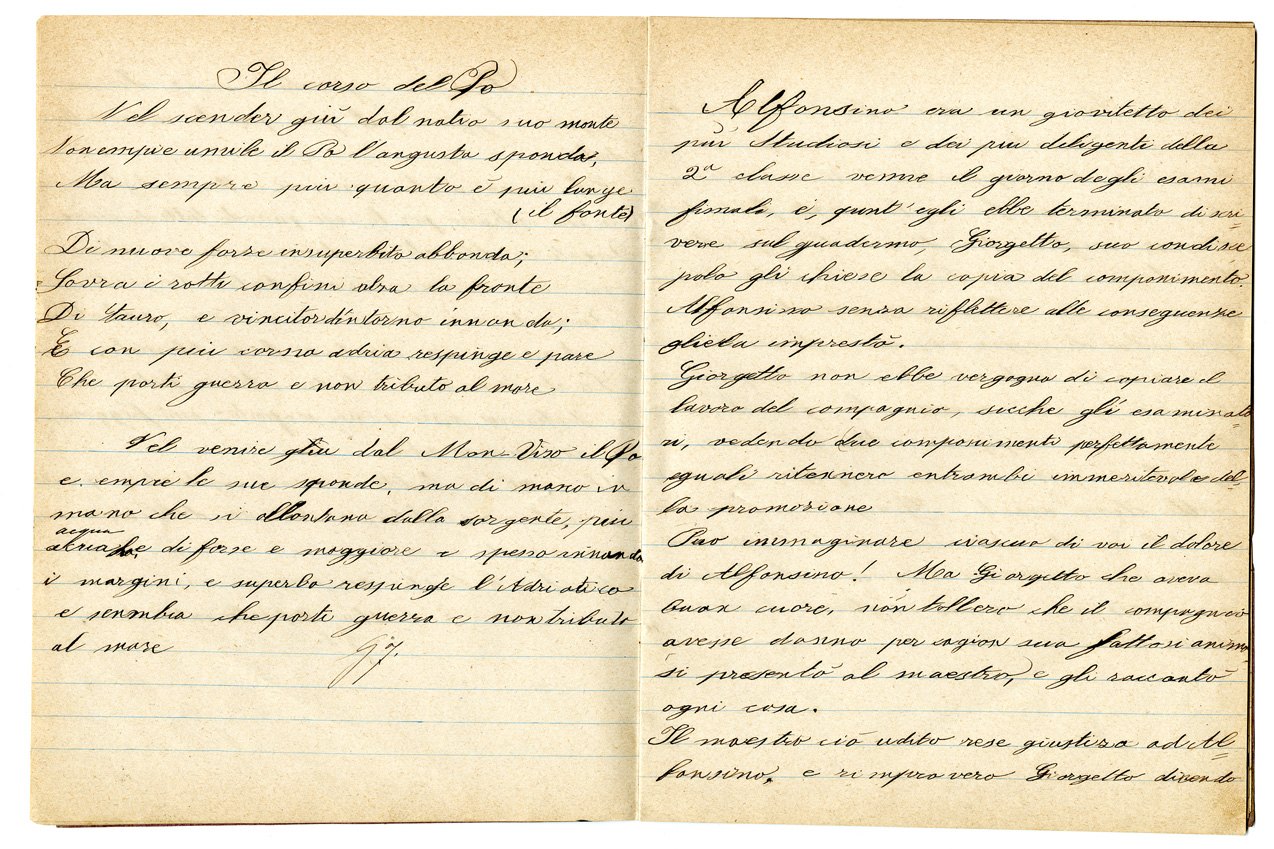 Il corso del Po
Nel scender giù dal natio suo monte
Non empie umile il Po l'angusta sponda,
Ma sempre più quanto è più lunge
(il fonte)
Di nuove forze insuperbito abbonda;
Sovra i rotti confini alza la fronte
Di tauro, e vincitor d'intorno innonda;
E con più corna adria respinge e pare
Che porti guerra e non tributo al mare
Nel venire giù dal Mon-Viso il Po
e empie le sue sponde, ma di mano in
mano che si allontana dalla sorgente, più
acqua
di forse e maggiore e spesso innonda
i margini, e superbo respinge l'Adriatico
e sembia che porti guerra e non tributo
al mare
Alfonsino era un giovitetto dei
più Studiosi e dei piu diligenti della
2a classe venne il giorno degli esami
finali, e, qunt' egli ebbe terminato di scri
vere sul quaderno, Giorgetto, suo condisce
polo gli chiese la copia del componimento.
Alfonsino senza riflettere alle conseguenze
gliela imprestò.
Giorgetto non ebbe vergogna di copiare il
lavoro del compagnio, sicche gl'i esaminato=
ri, vedendo due componimenti perfettamente
eguali ritennero entrambi immeritevole del=
la promozione
Puo immaginare ciascun di voi il dolore
di Alfonsino! Ma Giorgetto che aveva
buon cuore, non tollero che il compagnio
avesse danno per cagion sua fattosi animo
si presentò al maestro, e gli raccontò
ogni cosa.
Il maestro ciò udito rese giustizia ad Al=
fonsino, e rimprovero Giorgetto dicendo